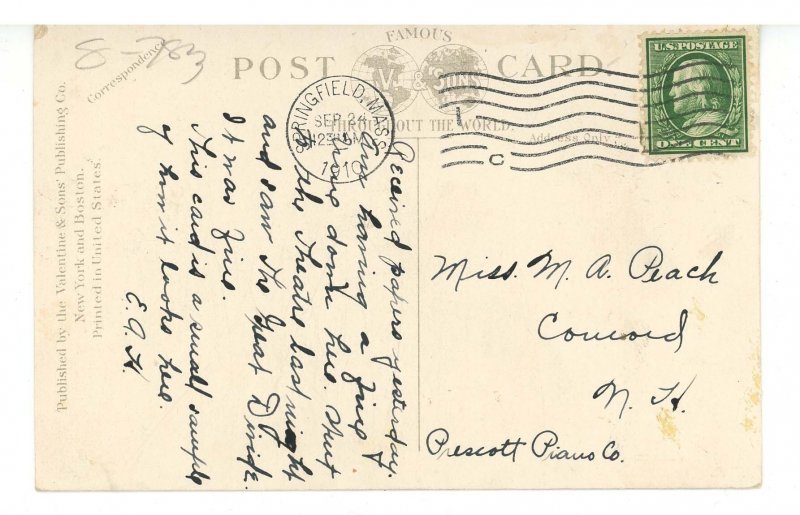 8-783
Correspondence.
FAMOUS
POST CARD.
V. & SONS
THROUGHOUT THE WORLD.
Address Only
U.S. POSTAGE
ONE CENT
SPRINGFIELD, MASS.
SEP 24
1230 PM
1910
C
Published by the Valentine & Sons' Publishing Co.
New York and Boston.
Printed in United States.
Received papers yesterday.
Am having a fine
time down here. Went
to the Theatre last night
and saw The Great Divide.
It was fine.
This card is a small sample
of how it looks here.
E. A. H.
Miss. M. A. Peach
Concord
N. H.
Prescott Piano Co.